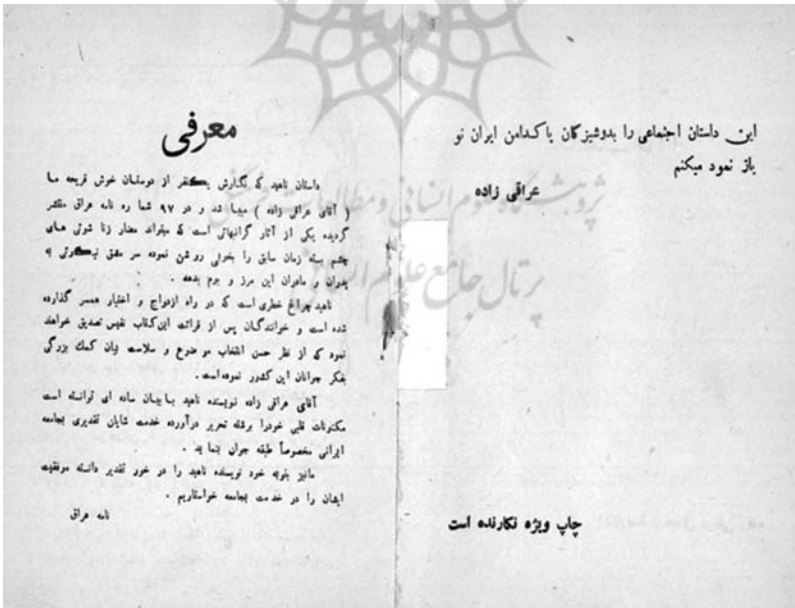 این داستان اجتماعی را بدوشیزگان پاکدامن ایران نو
باز نمود میکنم
عراقی زاده
چاپ ویژه نگارنده است
معرفی
داستان ناهید که نگارش یکنفر از دوستان خوش قریحه ما
( آقای عراقی زاده ) میباشد و در ۹۷ شماره نامه عراق منتشر
گردیده یکی از آثار گرانبهائی است که میتواند مضار زناشوئی های
چشم بسته زمان سابق را بخوبی روشن نموده سر مشق نیکوئی به
پدران و مادران این مرز و بوم بدهد .
ناهید چراغ خطری است که در راه ازدواج و اختیار همسر گذارده
شده است و خوانندگان پس از قرائت این کتاب نفیس تصدیق خواهند
نمود که از نظر حسن انتخاب موضوع و سلاست بیان کمک بزرگی
بفکر جوانان این کشور نموده است .
آقای عراقی زاده نویسنده ناهید با بیان ساده ای توانسته است
مکنونات قلبی خود را برشته تحریر درآورده خدمت شایان تقدیری بجامعه
ایرانی مخصوصاً طبقه جوان بنماید .
ما نیز بنوبه خود نویسنده ناهید را در خور تقدیر دانسته موفقیت
ایشان را در خدمت بجامعه خواستاریم .
نامه عراق
پژوهشگاه علوم انسانی و مطالعات فرهنگی
پرتال جامع علوم انسانی